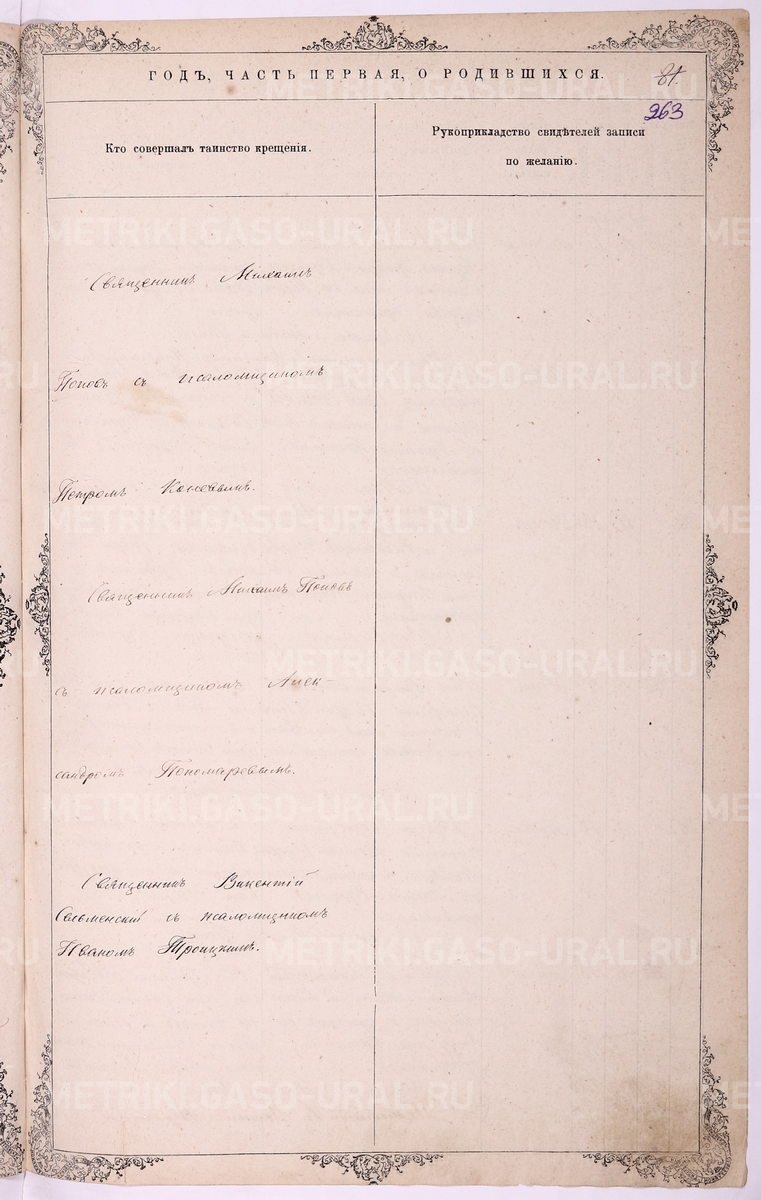 ГОДЪ, ЧАСТЬ ПЕРВАЯ, О РОДИВШИХСЯ.
81
263
Кто совершалъ таинство крещенія.
Рукоприкладство свидѣтелей записи
по желанію.
Священникъ Михаилъ
Поповъ съ псаломщикомъ
Петромъ
Священникъ Михаилъ Поповъ
съ псаломщикомъ Алек-
сандромъ Пономаревымъ.
Священникъ Викентій
Сельменскій съ псаломщикомъ
Иваномъ Троицкимъ.
METRIKI.GASO-URAL.RU